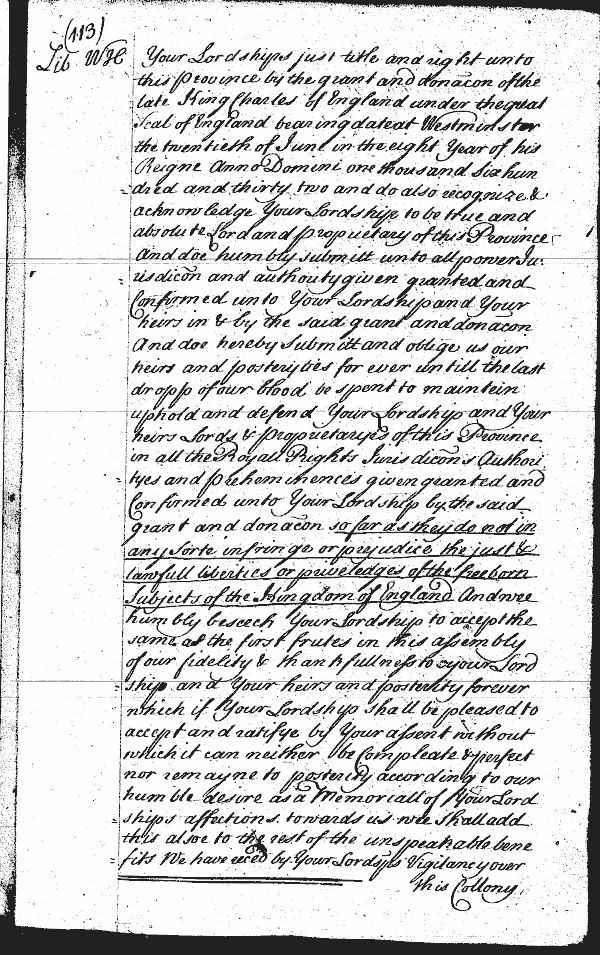 (113)
Lib WH
Your Lordships just title and right unto
this Province by the grant and donacon of the
late King Charles of England under the great
Seal of England bearing date at Westminster
the twentieth of June in the eight Year of his
Reigne Anno Domini one thousand Six hun
dred and thirty two and do also recognize &
acknowledge Your Lordship to be true and
absolute Lord and Proprietary of this Province
And doe humbly submitt unto all power Ju:
risdicon and authority given granted and
Confirmed unto Your Lordship and Your
heirs in & by the said grant and donacon
And doe hereby Submitt and oblige us our
heirs and posterityes for ever untill the last
dropp of our blood be spent to maintein
uphold and defend Your Lordship and Your
heirs Lords & Proprietaryes of this Province
in all the Royall Rights Jurisdicons Authori
tyes and Preheminences given granted and
Confirmed unto Your Lordship by the said
grant and donacon so far as they do not in
any Sorte infringe or prejudice the just &
lawfull liberties or priveledges of the freeborn
Subjects of the Kingdom of England And wee
humbly beseech Your Lordship to accept the
same as the first frutes in this assembly
of our fidelity & thankfullness to your Lord
ship and Your heirs and posterity forever
which if Your Lordship shall be pleased to
accept and ratifye by Your assent without
which it can neither be Compleate & perfect
nor remayne to posterity according to our
humble desire as a Memoriall of Your Lord
ships affections towards us wee shall add
this alsoe to the rest of the unspeakable bene
fits We have reced by Your Lordsps Vigilancy over
this Collony